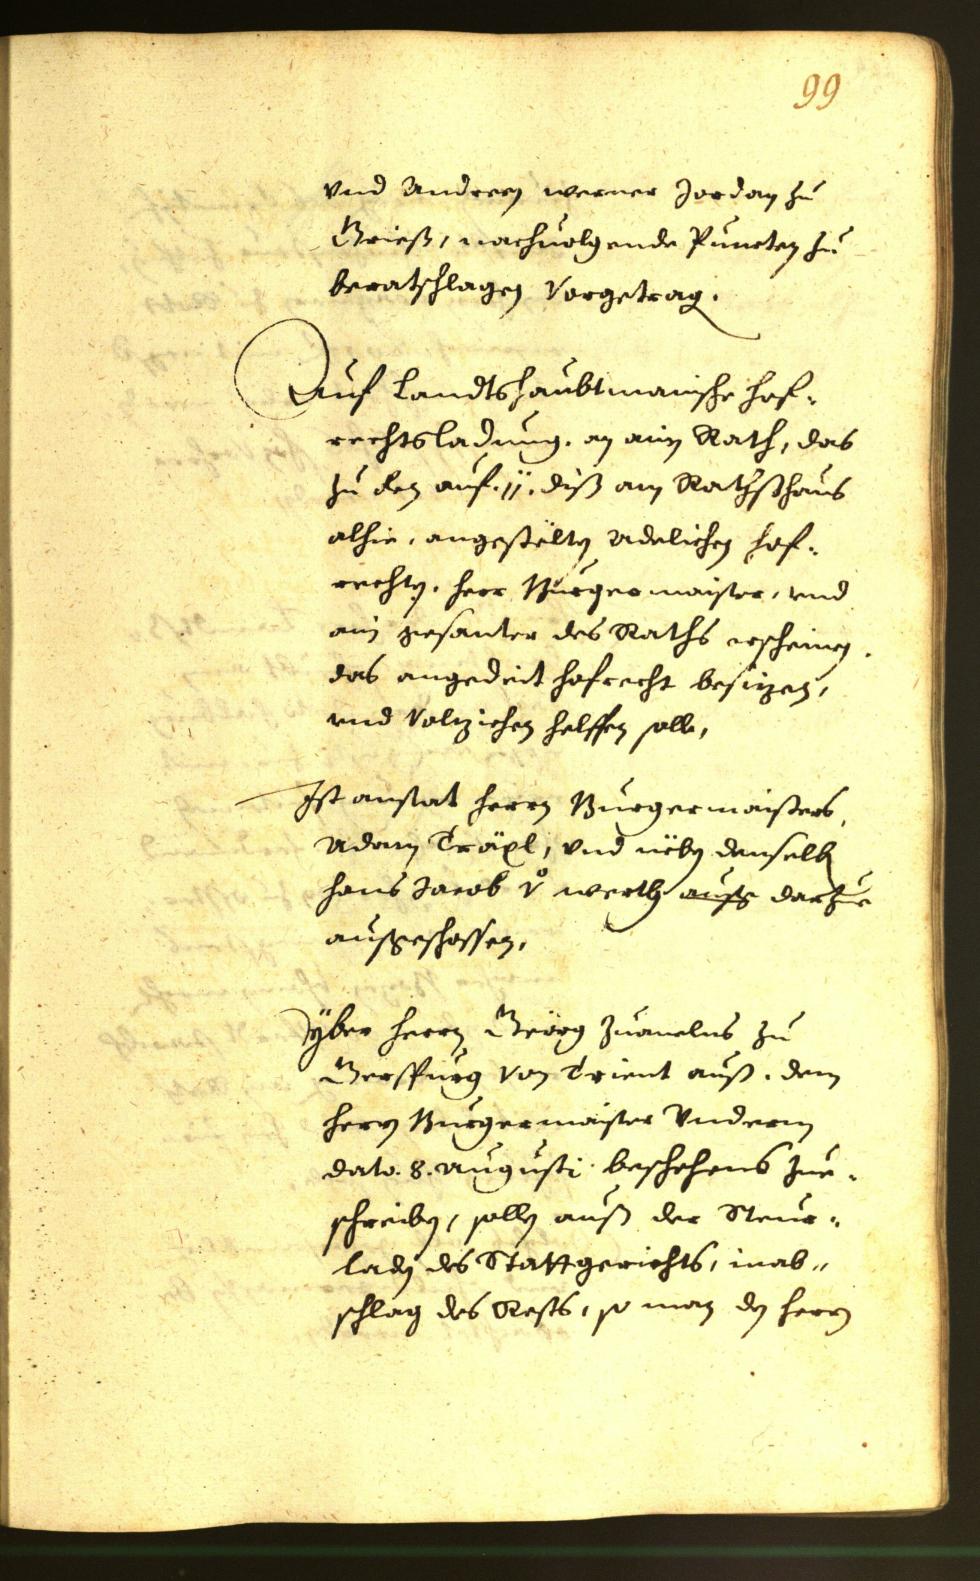 99
vnd Andreen werner Jordan zu
Grieß, nachuolgende Puncten zu
beratschlagen Vorgetrag.
Auf Landtshaubtmanische hof¬
rechtsladung. an ain Rath, das
zu den auf .11. diß am Rathßhaus
alhie, angestelten Adelichen hof¬
rechten. herr Burgermaister, vnd
ain gesanter des Raths erscheinen.
das angedeit hofrecht besizen,
vnd Volziehen helffen solle,
Ist anstat herrn Burgermaisters,
Adam Träxl, vnd neben demselb
hans Jacob v werth auss darzue
ausgeschossen,
yber herrn Geörg zu
Gerspurg Von Trient auß. dem
herrn Burgermaister Vnderm
dato .8. Augusti beschehens zue¬
schreiben, sollen auß der Steur¬
laden des Stattgerichts, inab¬
schlag des Rests, so man den herrn